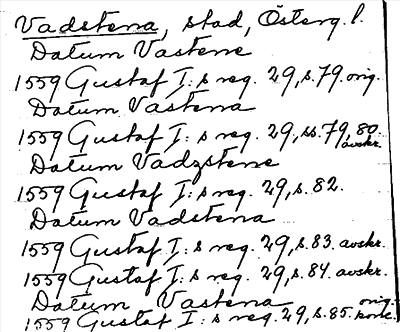 Vadstena, stad, Österg. l.
Datum Vastene
1559 Gustaf I:s reg. 29, s. 79. orig.
Datum Vastena
1559 Gustaf I:s reg. 29, ss. 79, 80. avskr.
Datum Vadzstene
1559 Gustaf I:s reg. 29, s. 82.
Datum Vadstena
1559 Gustaf I:s reg. 29, s. 83. avskr.
1559 Gustaf I:s reg. 29, s. 84. avskr.
Datum Vastena
1559 Gustaf I:s reg. 29, s. 85. orig. konc.